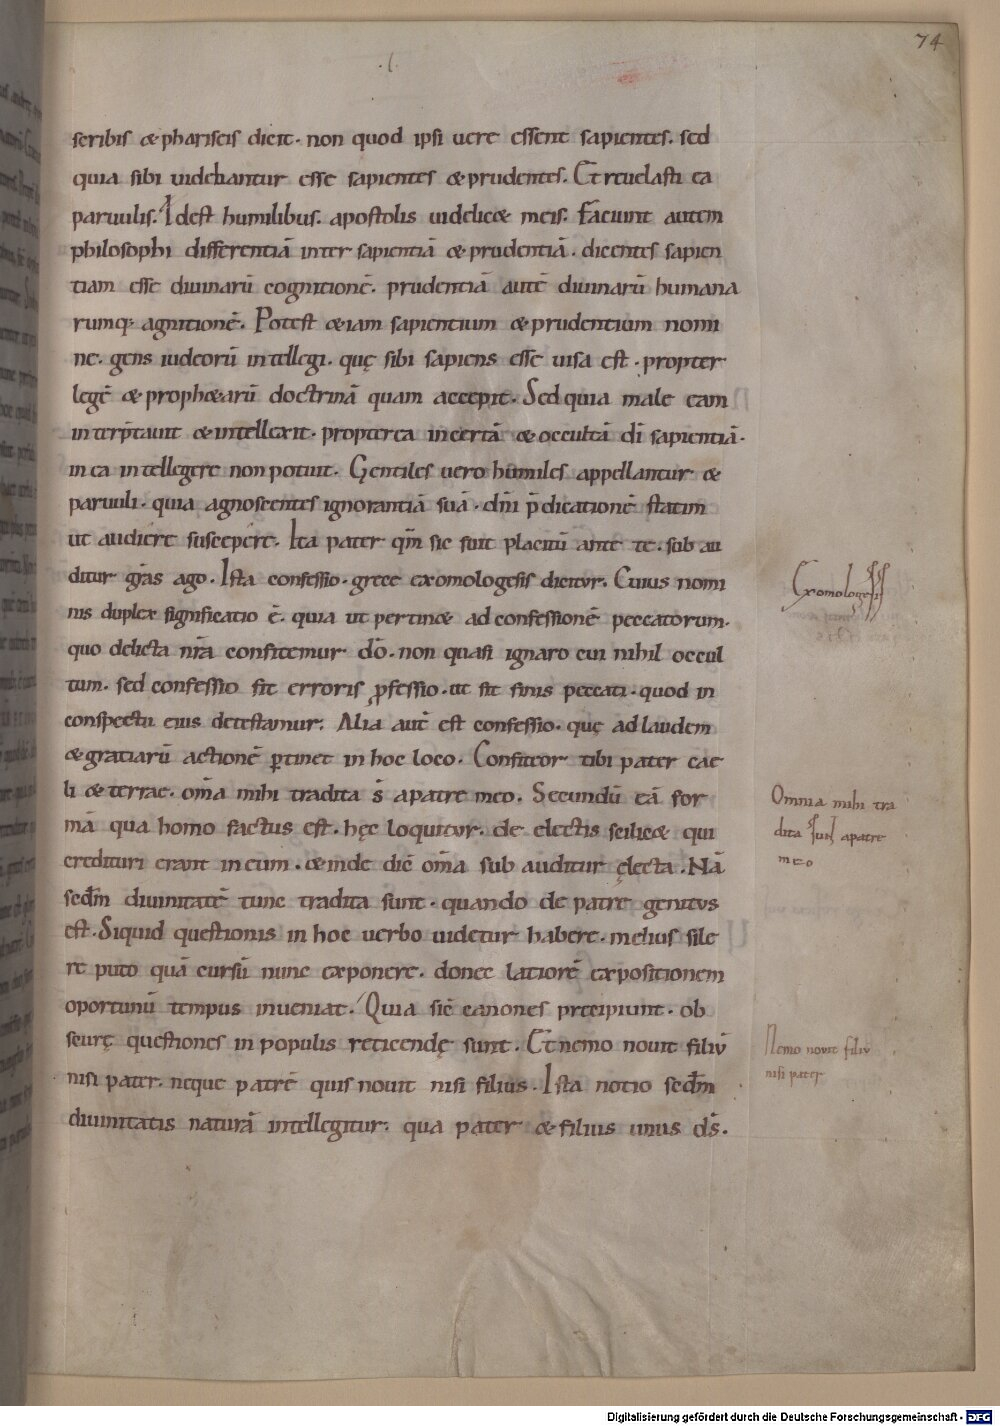 74
scribis & phariseis dicit. non quod ipsi uere essent sapientes. sed
quia sibi uidebantur esse sapientes & prudentes. Et reuelasti ea
paruulis. Idest humilibus. apostolis uidelic& meis. Faciunt autem
philosophi differentiā inter sapientiā & prudentiā. dicentes sapien
tiam esse diuinarū cognitionē. prudentiā autē diuinarū humana
rumq; agnitionē. Potest &iam sapientium & prudentium nomi
ne. gens iudeorū intellegi. quę sibi sapiens esse uisa est. propter
legē & proph&arū doctrinā quam accepit. Sed quia male eam
interp̄tauit & intellexit. propterea incertā & occultā dī sapientiā.
in ea intellegere non potuit. Gentiles uero humiles appellantur &
paruuli. quia agnoscentes ignorantiā suā. dn̄i p̄dicationē statim
ut audiere suscepere. Ita pater qm̄ sic fuit placitū ante te. sub au
ditur gr̄as ago. Ista confessio. grece exomologesis dicitur. Cuius nomi
nis duplex significatio ē. quia ut pertin& ad confessionē peccatorum.
quo delicta nr̄a confitemur dō. non quasi ignaro cui nihil occul
tum. sed confessio fit erroris ꝓfessio. ut sit finis peccati. quod in
conspectu eius detestamur. Alia aut̄ est confessio. quę ad laudem
& gratiarū actionē ꝑtinet in hoc loco. Confiteor tibi pater cae
li & terrae. om̄a mihi tradita s̄ apatre meo. Secundū eā for
mā qua homo factus est. hęc loquitur. de electis scilic& qui
credituri erant in eum. & inde dic̄ om̄a sub auditur ęlecta. Nā
scdm̄ diuinitatē tunc tradita sunt. quando de patre genitus
est. Siquid questionis in hoc uerbo uidetur habere. melius sile
re puto quā cursū nunc exponere. donec latiorē expositionem
oportunū tempus inueniat. Quia sic̄ canones precipiunt. ob
scurę questiones in populis reticendę sunt. Et nemo nouit filiū
nisi pater. neque patrē quis nouit nisi filius. Ista notio scdm̄
diuinitatis naturā intellegitur. qua pater & filius unus ds̄.
Exomologesis
Omnia mihi tra
dita sunt apatre
meo
Nemo nouit filiū
nisi pater
Digitalisierung gefördert durch die Deutsche Forschungsgemeinschaft - DFG